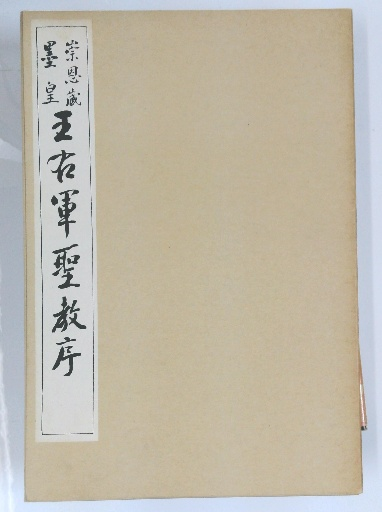 崇恩藏
墨皇
王右軍聖教序